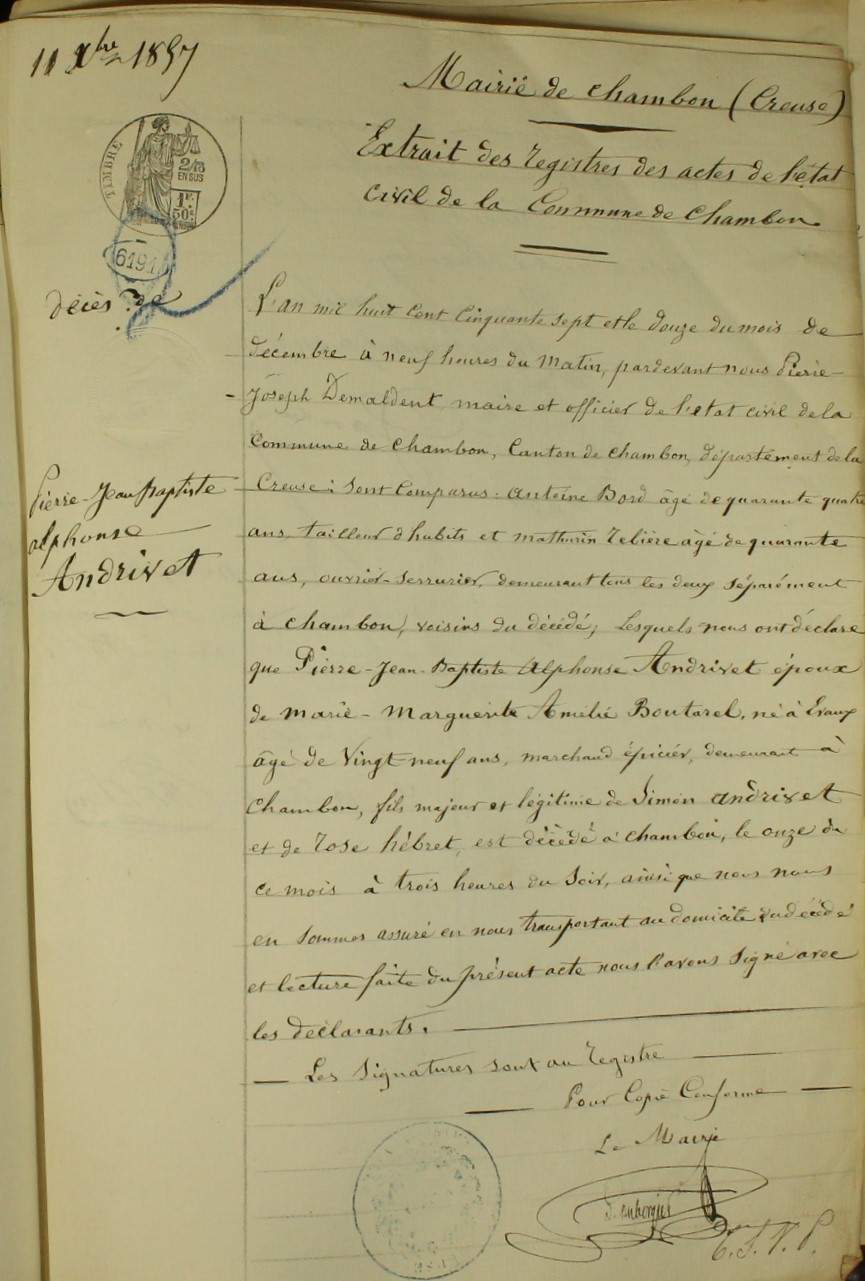 11 Xbre 1857
Mairie de Chambon (Creuse)
Extrait des Registres des actes de l'état
civil de la Commune de Chambon
TIMBRE
2/10
EN SUS
1F.
50c
6191
décès de
Pierre-Jean Baptiste
alphonse
Andrivet
L'an mil huit cent cinquante sept et le douze du mois de
décembre à neuf heures du matin, pardevant nous Pierre-
Joseph Demaldent maire et officier de l'état civil de la
Commune de Chambon, Canton de Chambon, département de la
Creuse; sont comparus: antoine Bord âgé de quarante quatre
ans, tailleur d'habits et mathurin Telière âgé de quarante
ans, ouvrier-serrurier, demeurant tous les deux séparément
à Chambon, voisins du décédé; Lesquels nous ont déclaré
que Pierre-Jean-Baptiste Alphonse Andrivet époux
de marie-Marguerite Amélie Boutarel, né à Evaux
âgé de Vingt-neuf ans, marchand épicier, demeurant à
Chambon, fils majeur et légitime de Simon andrivet
et de rose hébret, est décédé à Chambon, le onze du
ce mois à trois heures du soir, ainsi que nous nous
en sommes assuré en nous transportant au domicile du décédé
et lecture faite du présent acte nous l'avons signé avec
les déclarants.
Les Signatures sont au registre
Pour Copie Conforme
Le Maire
T. S. V. P.